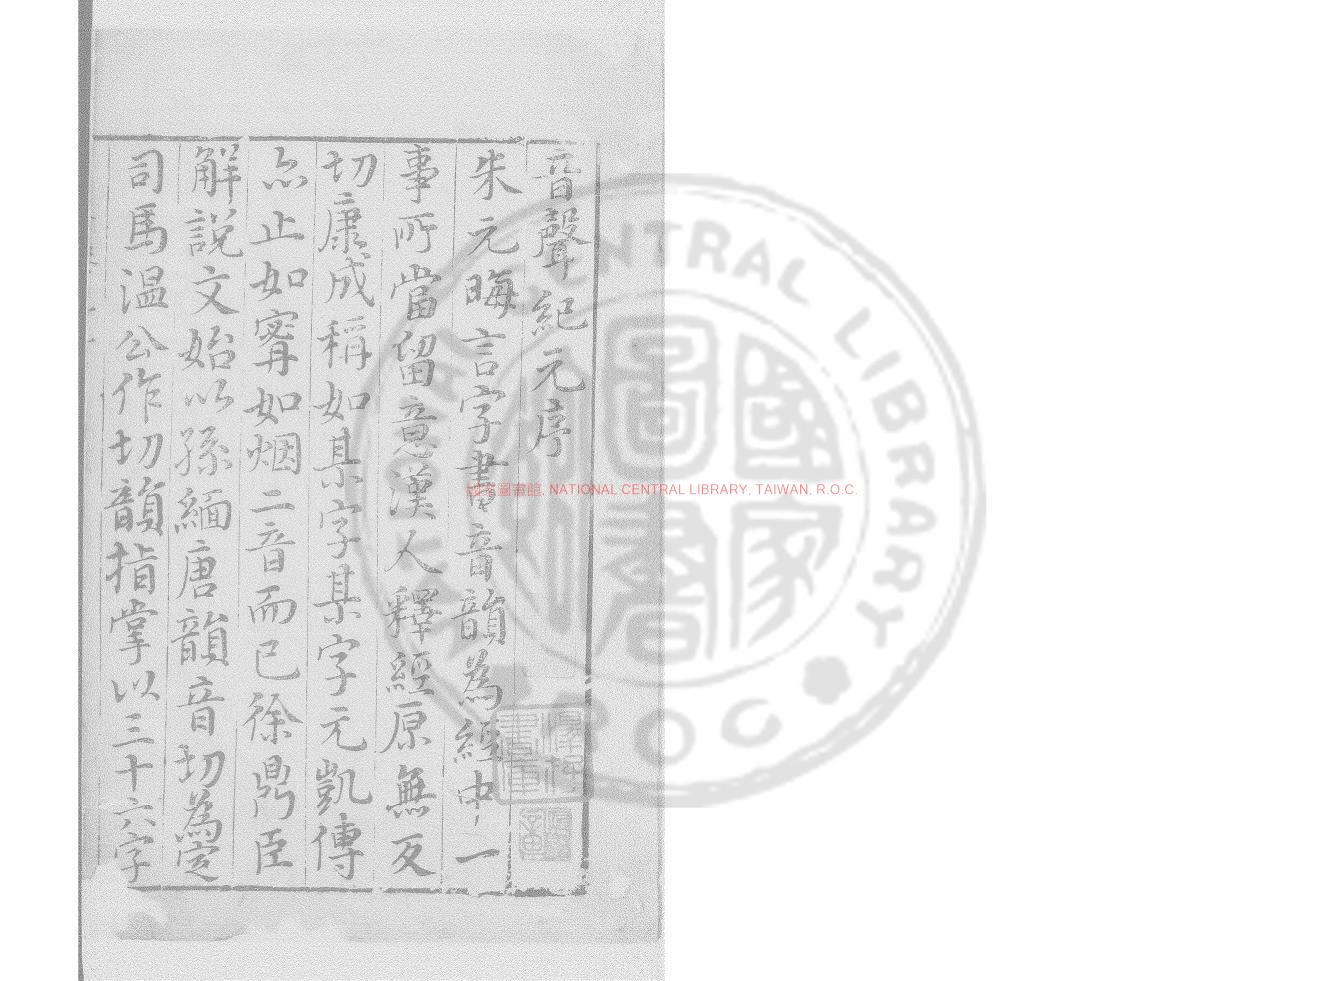 音聲紀元序
朱元晦言字書音韻為經中一
事所當留意漢人釋經原無反
切康成稱如某字某字元凱傳
亦止如甯如烟二音而已徐鼎臣
解說文始以孫緬唐韻音切為定
司馬温公作切韻指掌以三十六字
國家圖書館. NATIONAL CENTRAL LIBRARY, TAIWAN, R.O.C.
CENTRAL LIBRARY
ROC
國家圖書